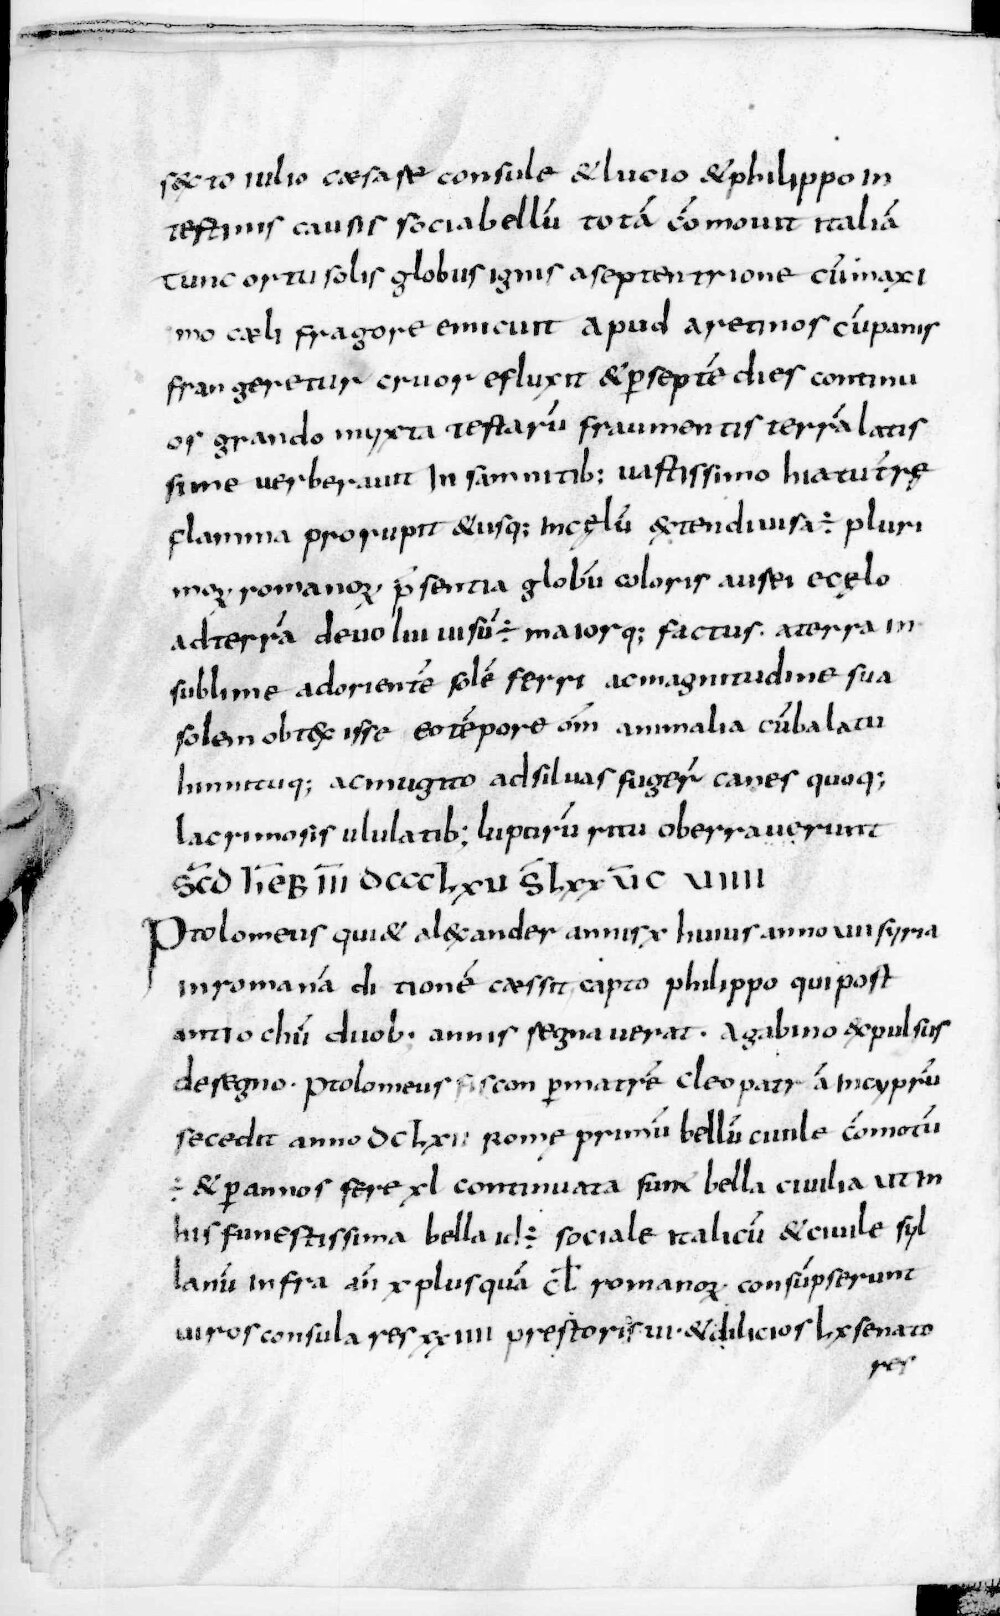 s&to iulio cæsare consule & lucio & philippo in
testinis causis socia bellū totā cōmovit italiā
tunc ortu solis globus ignis a septentrione cū maxi
mo cæli fragore emicuit apud aretinos cū panis
frangeretur cruor efluxit & ꝑ septē dies continu
os grando mixta testarū fraumentis terrā latis
sime verberavit In samnitib; vastissimo hiatu trę
flamma prorupit & usq; in cęlū extendi visa ÷ pluri
moꝝ romanoꝝ p̄sentia globū coloris aurei e cęlo
ad terrā devolvi uisū ÷ maiorq; factus. a terra in
sublime ad orientē solē ferri ac magnitudine sua
solem obtexisse eo tēpore om̄ animalia cū balatu
hinnituq; ac mugito ad silvas fuger̄ canes quoq;
lacrimosis ululatib; lupurū ritu oberraverunt
S̄cd h̄eƀ īīī dccclxv S̄ lxx v̄c viiii
Ptolomeus qui & alexander annis x huius anno viii syria
in romanā ditionē cæssit capto philippo qui post
antiochū duob. annis regnaverat. A gabino expulsus
de regno. ptolomeus fiscon ꝑ matrē cleopatrā in cyprū
secedit anno dclxii Rome primū bellū civile cōmotū
÷ & ꝑ annos fere xl continuata sunt bella civilia ut in
his funestissima bella id ÷ sociale italicū & civile syl
lanū infra an̄ x plus quā c̄l romanoꝝ. consūpserunt
viros consulares xxiiii pretoris vi. & dilicios lx senato
res